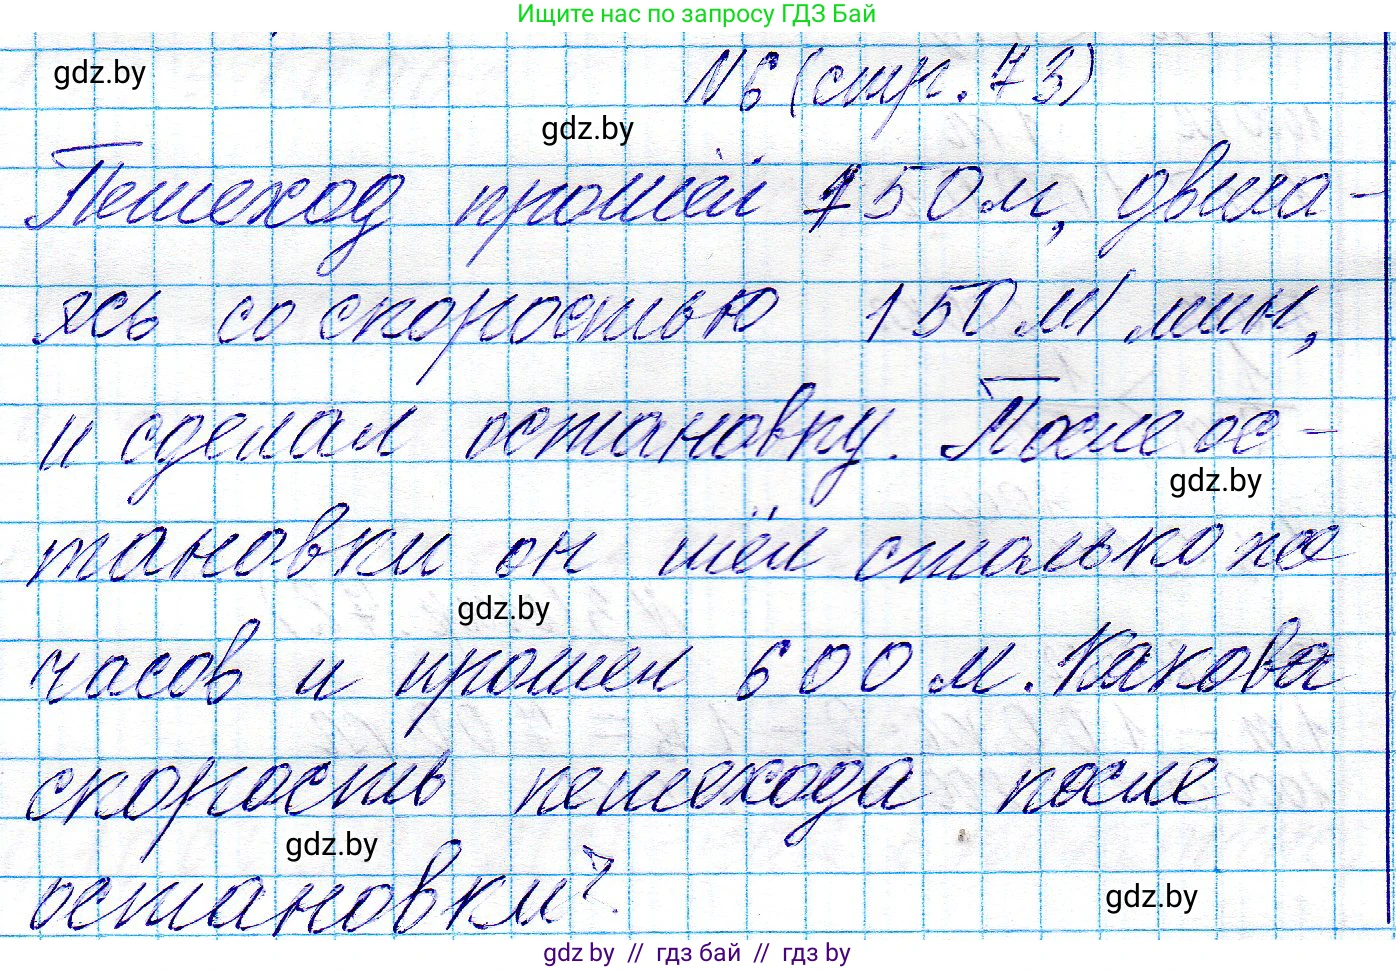 Ищите нас по запросу ГДЗ Бай
gdz.by
№6 (стр. 73)
gdz.by
Пешеход прошёл 750 м, двига-
ясь со скоростью 150 м/мин,
и сделал остановку. После ос-
gdz.by
тановки он шёл столько же
gdz.by
часов и прошел 600 м. Какова
скорость пешехода после
gdz.by
остановки?
gdz.by
gdz.by // гдз бай // гдз by